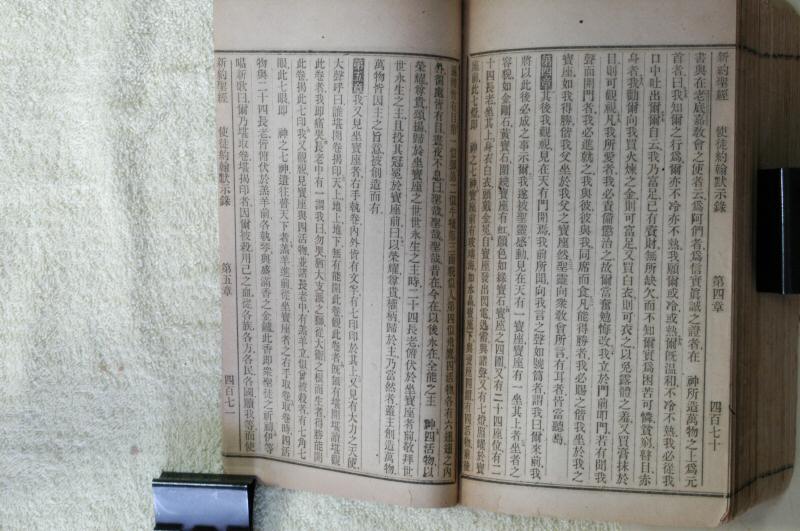 新約聖經 使徒約翰默示錄 第四章 四百七十
書與在老底嘉敎會之使者云爲阿們者爲信實眞誠之證者在 神所造萬物之上爲元
首者曰我知爾之行爲爾亦不冷亦不熱我願爾或冷或熱爾旣溫和不冷不熱我必從我
口中吐出爾爾自云我乃富足已有貲財無所缺欠而不知爾實爲困苦可憐貧窮瞽目赤
身者我勸爾向我買火煉之金則可富足又買白衣則可衣之以免露體之羞又買膏抹於
目則可觀視凡我所愛者我必責備懲治之故爾當奮勉悔改我立於門前叩門若有聞我
聲而開門者我必進就之我與彼彼與我同席而食凡能得勝者我必賜之偕我坐於我之
寶座如我得勝偕我父坐於我父之寶座然聖靈向衆敎會所言有耳者皆當聽焉
第四章 此後我觀視見在天有門開焉我前所聞向我言之聲如號筒者謂我曰爾來前我
將以此後必成之事示爾我遂被聖靈感動見在天有一寶座寶座有一坐其上者坐者之
容貌如金剛石黃寶石圍繞寶座有虹顏色如綠寶石寶座之四圍又有二十四座位有二
十四長老坐其上身衣白衣頭戴金冕自寶座發出閃電迅雷與諸聲又有七燈
座前此七燈卽 神之七神寶座前有玻璃海如水晶
外面處皆有目晝夜不息曰聖哉聖哉聖哉昔在今在以後永在全能之主 神四活物以
榮耀尊貴頌揚歸於坐寶座之世世永生之主時二十四長老俯伏於坐寶座者前敬拜世
世永生之主且投其冠冕於寶座前曰以榮耀尊貴權柄歸於主乃當然者蓋主創造萬物
萬物皆因主之旨意被創造而有
第五章 我又見坐寶座者右手執卷內外皆有文字有七印印於其上又見有大力之天使
大聲呼曰誰堪開卷揭印天上地上地下無有能開此卷觀此卷者
此卷者我卽痛哭長老中有一謂我曰勿哭猶大支派之獅從大衛之根而生者得勝能開
此卷揭此七印我又觀視見寶座與四活物並諸長老中有羔羊立似曾被殺者有七角七
眼此七眼卽 神之七神遣往普天下者羔羊進前從坐寶座者之右手取卷取卷時四活
物與二十四長老皆俯伏於羔羊前各執琴與盛滿香之金鑪此香卽衆聖徒之祈禱伊等
唱新歌曰爾乃堪取卷堪揭印者因爾被殺用己之血從各族各方各民各國贖我等而使
新約聖經 使徒約翰默示錄 第五章 四百七一